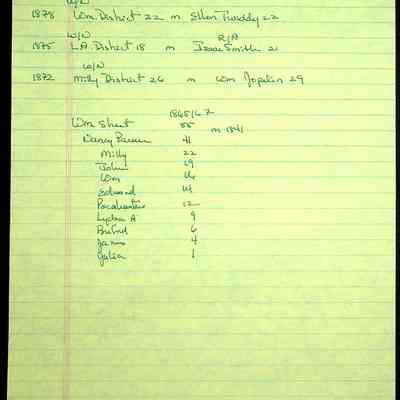 W/N
1878 Wm. District 22 m Ellen Twiddy 22
W/N R/A
1875 L.A. District 18 m Isaac Smith 21
W/N
1872 Milly District 26 m Wm Joplin 29
1865/6 ?
Wm Sheet 55 m 1841
Nancy 41
Milly 22
John 19
Wm 16
Edward 14
Pocahontas 12
Lydia A 9
Buford 6
James 4
Julia 1